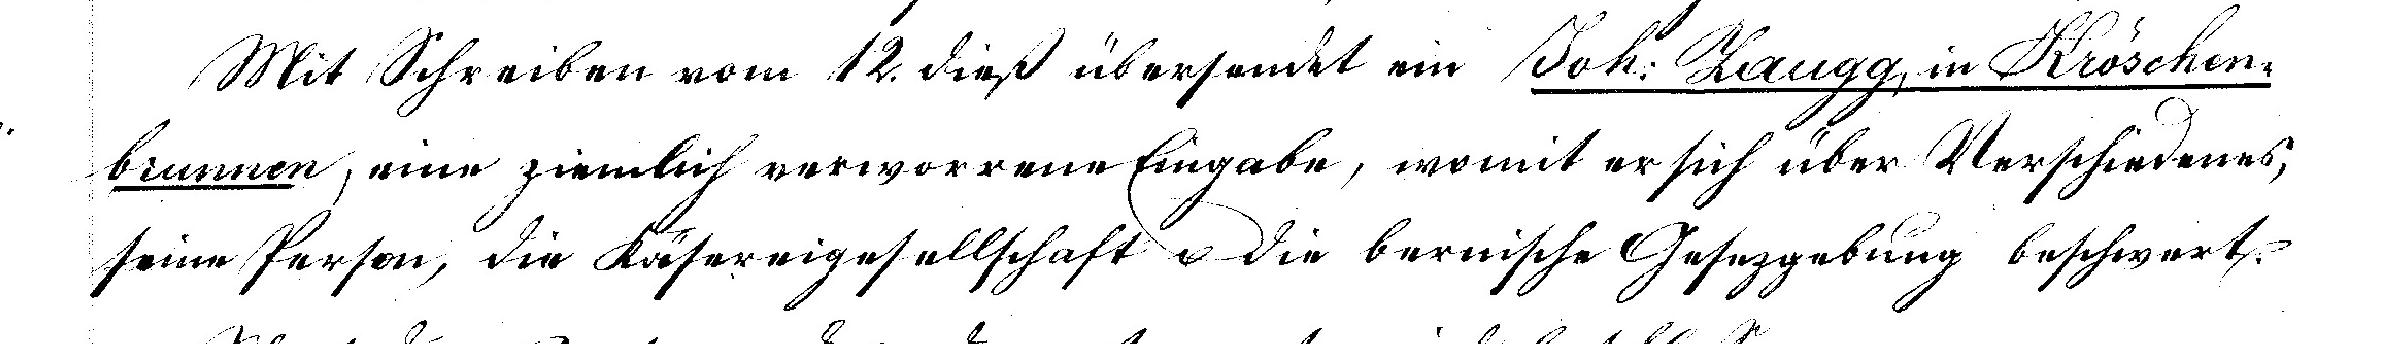 Mit Schreiben vom 12. dieß übersendet ein Joh: Zaugg, in Kröschen-
brunnen, eine ziemlich verworrene Eingabe, womit er sich über Verschiedenes,
seine Person, die Käsereigesellschaft u die bernische Gesezgebung beschwert.